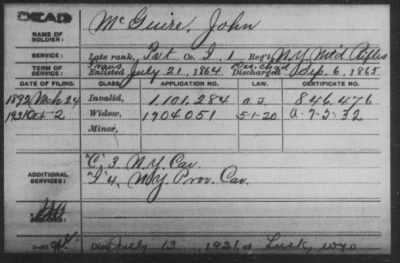 DEAD
NAME OF SOLDIER: McGuire, John
SERVICE: Late rank, Pvt Co. I, 1 Reg't N.Y. Mt'd Rifles
TERM OF SERVICE: Enlisted July 21, 1864 Discharged Sep. 6, 1865
DATE OF FILING. CLASS. APPLICATION NO. LAW. CERTIFICATE NO.
1892 Mch 24 Invalid, 1.101.284 846.476
1931 Oct-2 Widow, 1704051 5-1-20 a-7-3-32
Minor,
ADDITIONAL SERVICES: "C" 3 N.Y. Cav.
"I" 4, N.Y. Prov. Cav.
Died July 13, 1931, at Lusk, Wyo